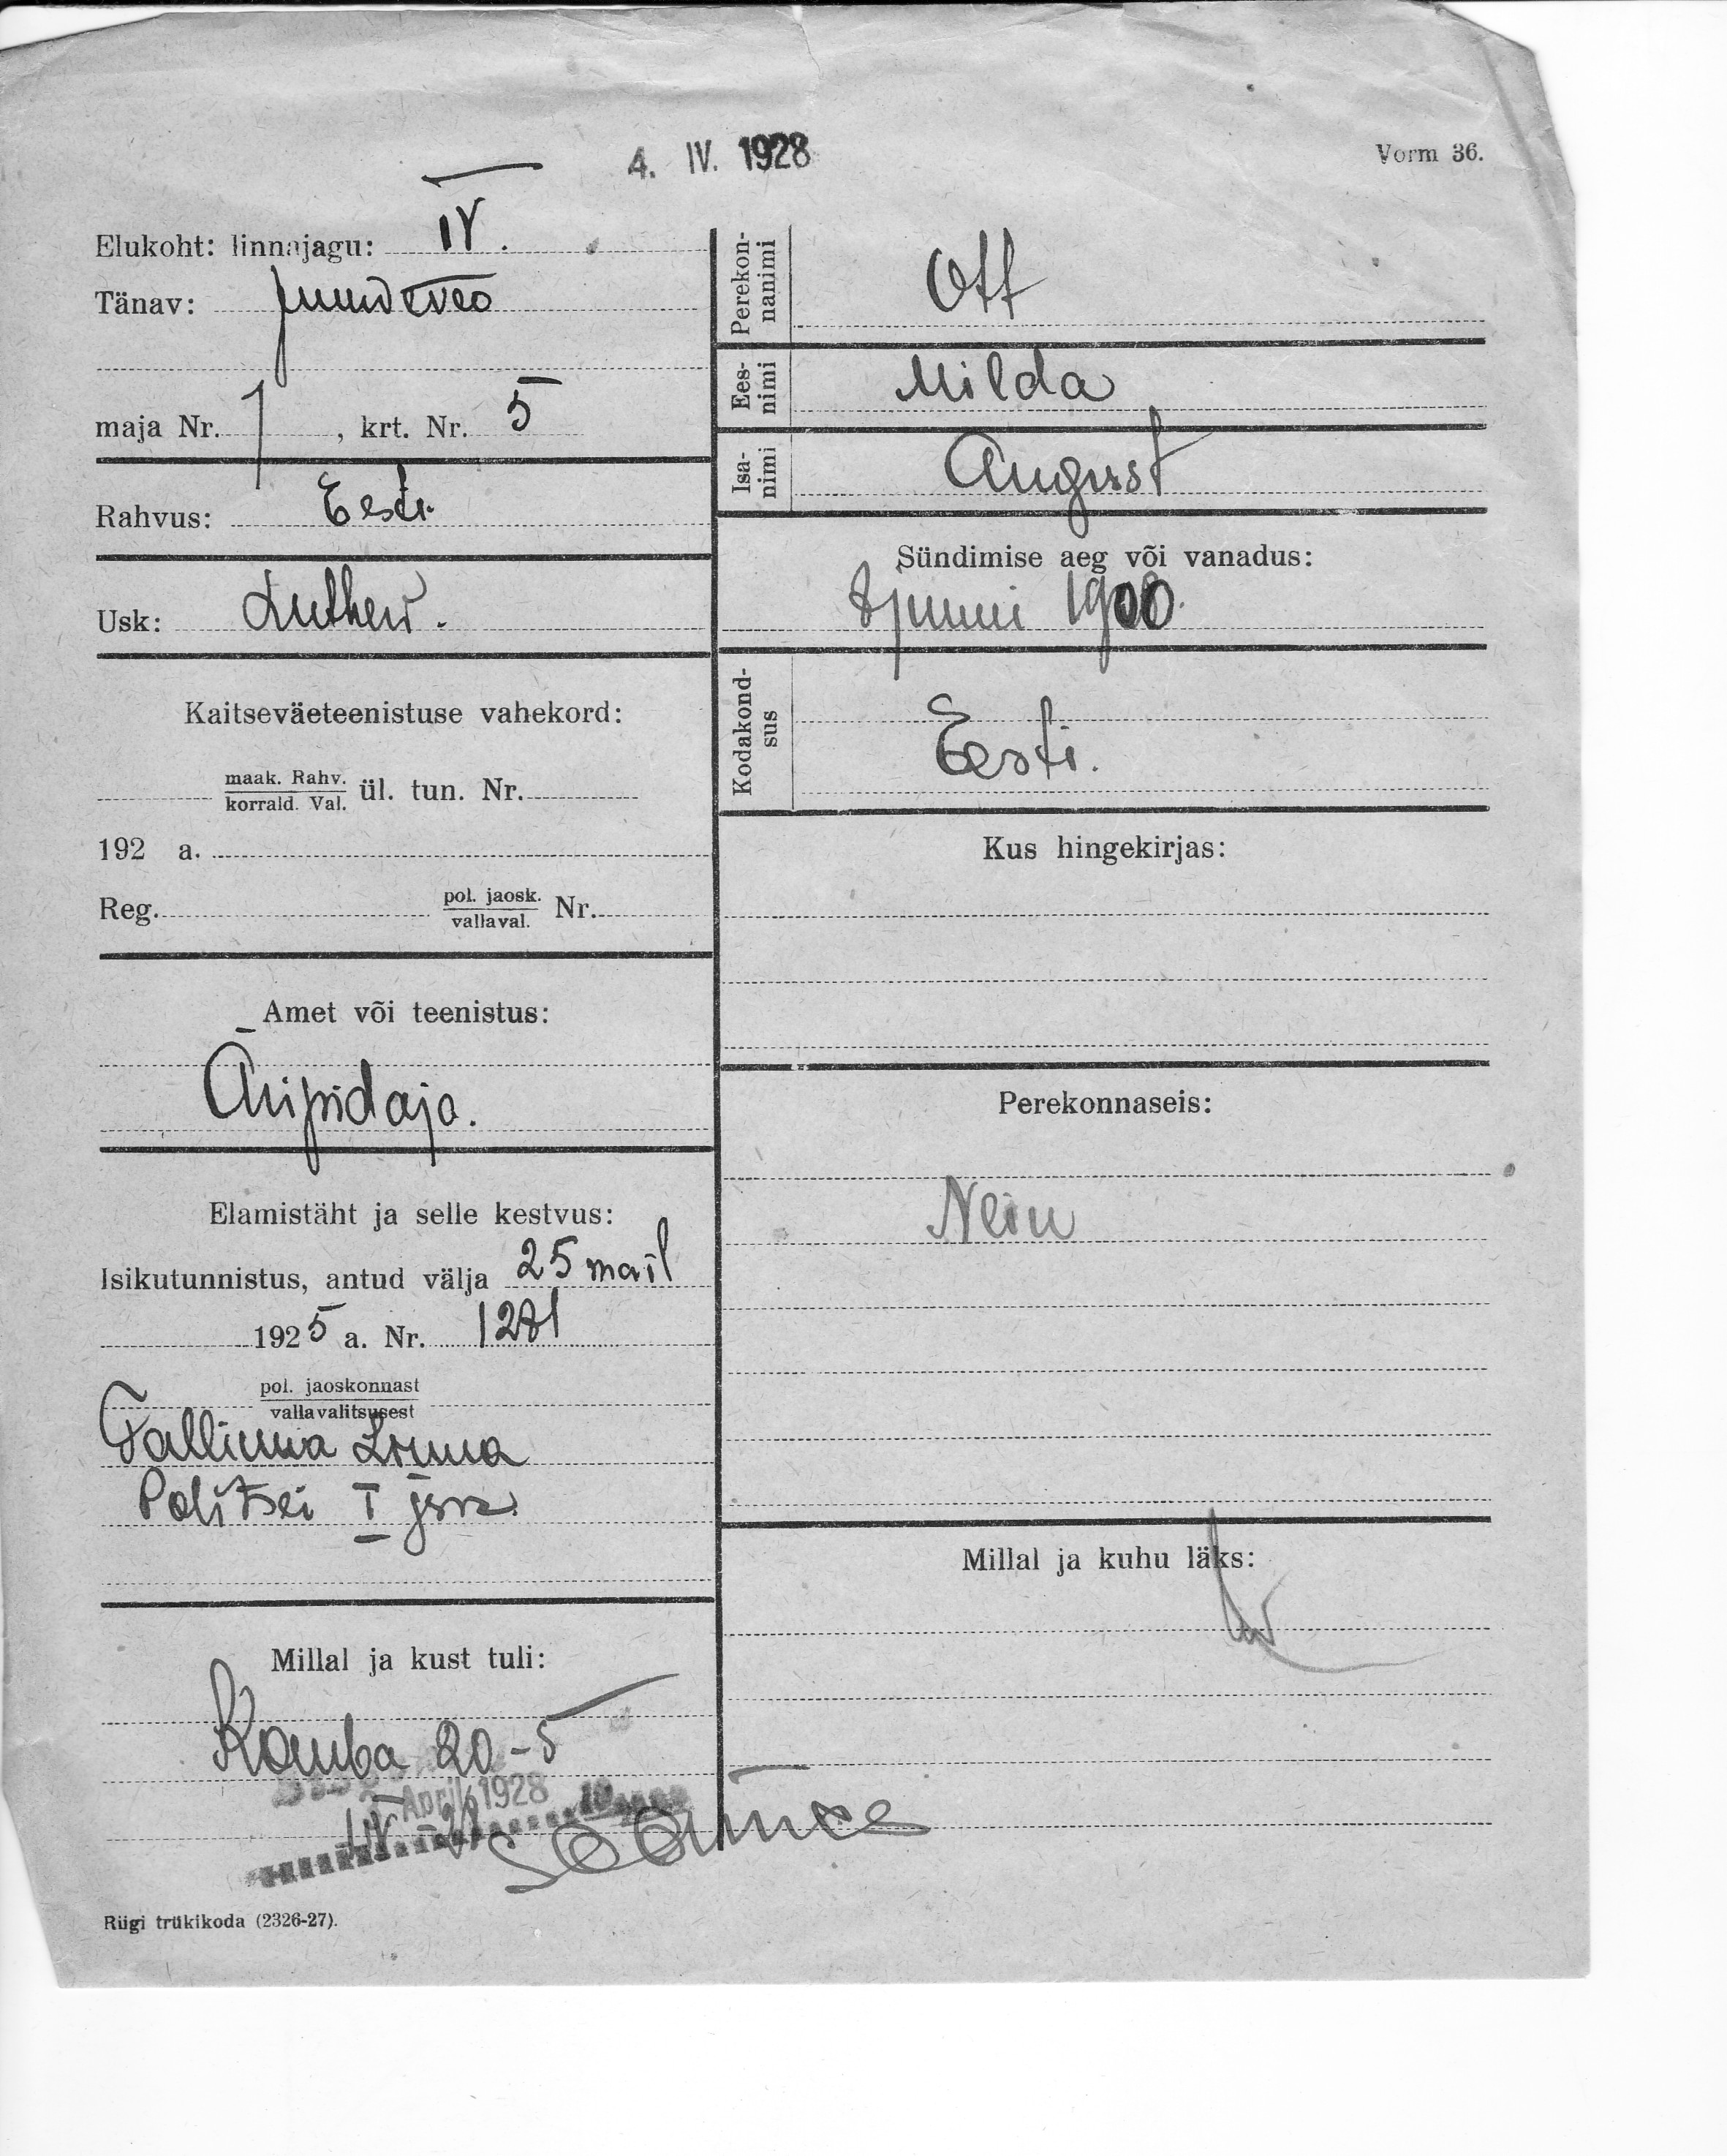 4. IV. 1928
Vorm 36.
Elukoht: linnajagu: IV.
Tänav: Juurdeveo
maja Nr. 7, krt. Nr. 5
Rahvus: Eesti
Usk: Luther.
Kaitseväeteenistuse vahekord:
maak. Rahv.
korrald. Val. ül. tun. Nr.
192 a.
Reg. pol. jaosk.
vallaval. Nr.
Amet või teenistus:
Äripidaja.
Elamistäht ja selle kestvus:
Isikutunnistus, antud välja 25 mail
1925 a. Nr. 1281
pol. jaoskonnast
vallavalitsusest
Tallinna Linna
Politsei I jsk.
Millal ja kust tuli:
20-5
April 1928
Riigi trükikoda (2326-27).
Perekon-
nanimi Ott
Ees-
nimi Milda
Isa-
nimi August
Sündimise aeg või vanadus:
8 juuni 1900.
Kodakond-
sus Eesti.
Kus hingekirjas:
Perekonnaseis:
Neiu
Millal ja kuhu läks: